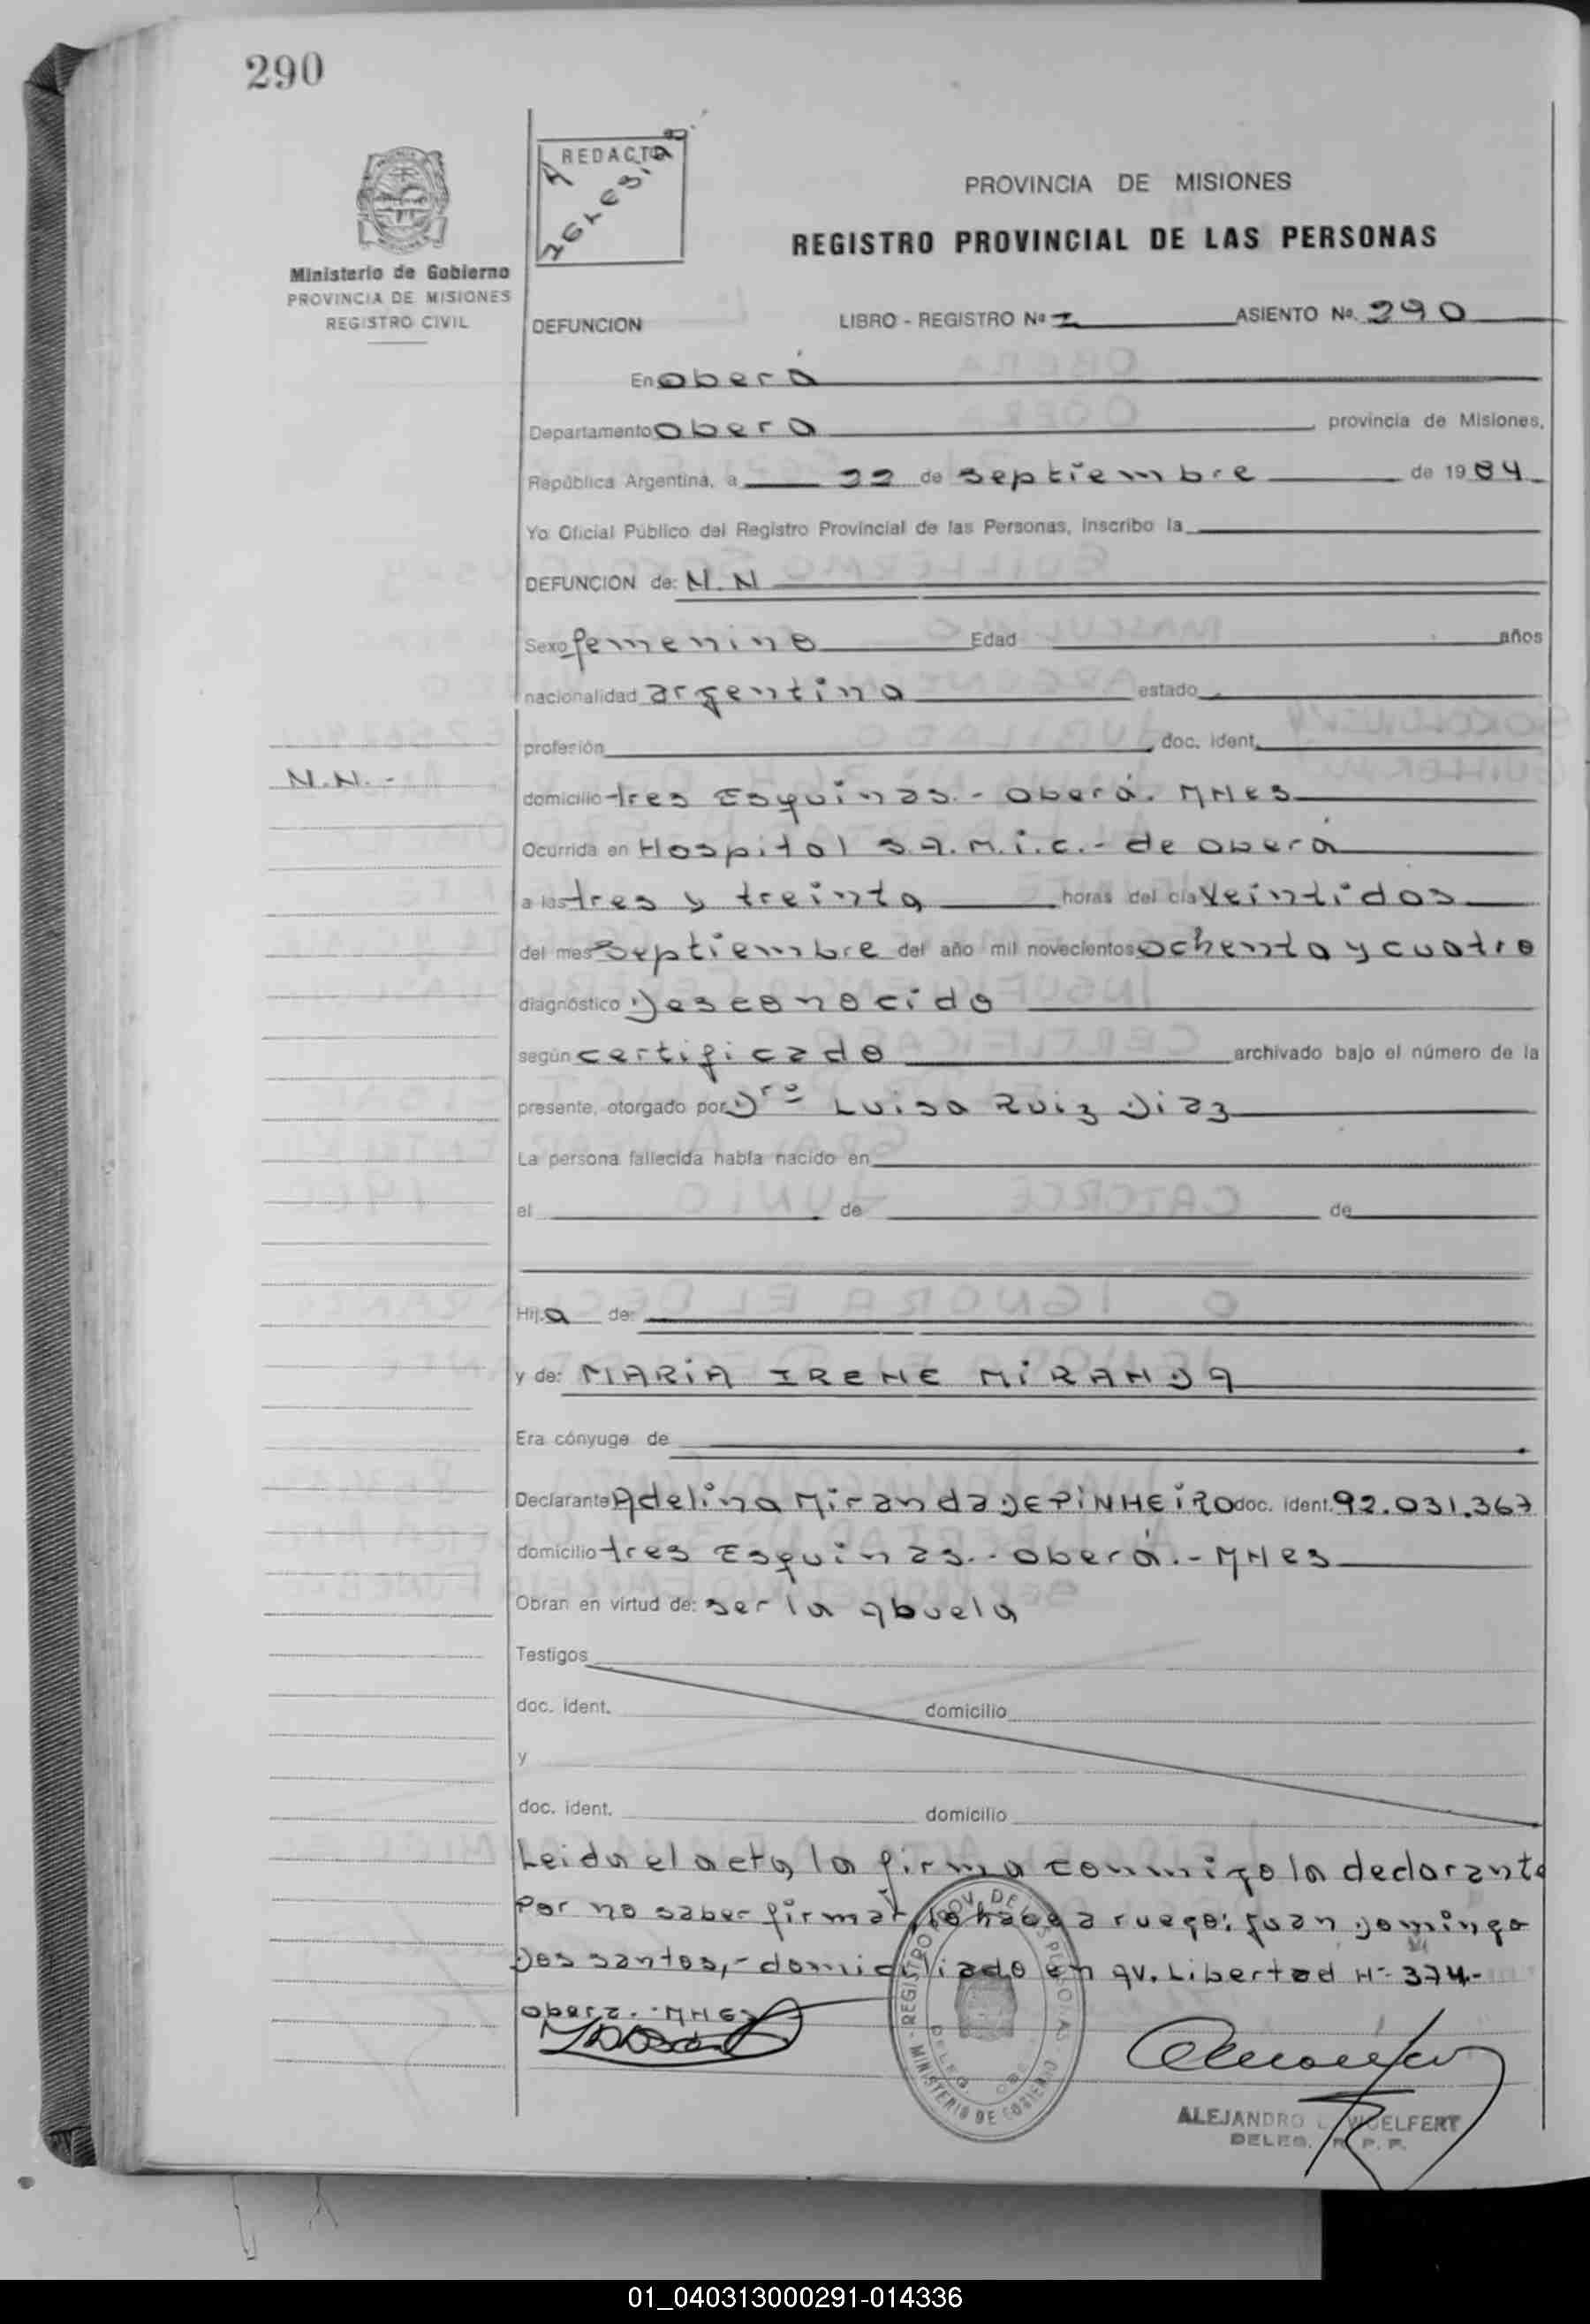 290
REDACTO
PROVINCIA DE MISIONES
REGISTRO PROVINCIAL DE LAS PERSONAS
Ministerio de Gobierno
PROVINCIA DE MISIONES
REGISTRO CIVIL
DEFUNCION LIBRO - REGISTRO Nº I ASIENTO Nº 290
En Oberá
Departamento Obera provincia de Misiones,
República Argentina, a 22 de septiembre de 1984
Yo Oficial Público del Registro Provincial de las Personas, inscribo la
DEFUNCION de: N.N
Sexo femenino Edad años
nacionalidad argentina estado
profesión doc. ident.
N.N.-
domicilio tres Esquinas.- Oberá. MNes
Ocurrida en Hospital S.A.M.i.c.- de Oberá
a las tres y treinta horas del día Veintidos
del mes Septiembre del año mil novecientos ochenta y cuatro
diagnóstico Desconocido
según certificado archivado bajo el número de la
presente, otorgado por Dra Luisa Ruiz Diaz
La persona fallecida había nacido en
el de de
Hija de:
y de: MARIA IRENE MIRANDA
Era cónyuge de
Declarante Adelina Miranda DE PINHEIRO doc. ident. 92.031.367
domicilio tres Esquinas.- Oberá.- MNes
Obran en virtud de: ser la abuela
Testigos
doc. ident. domicilio
y
doc. ident. domicilio
Leida el acta, la firma conmigo la declarante
Por no saber firmar, lo hace a ruego: Juan Domingo
Dos santos,- domiciliado en av. Libertad N- 374.-
Obera.-MNes
REGISTRO PROV. DE LAS PERSONAS
MINISTERIO DE GOBIERNO
ALEJANDRO WOELFERT
DELEG. R. P. P.
01_040313000291-014336